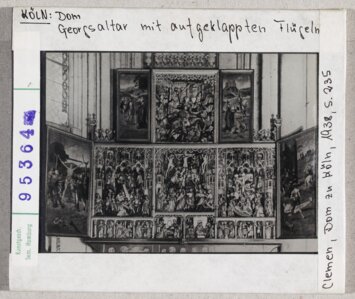 KÖLN: Dom
Georgsaltar mit aufgeklappten Flügeln
95364
Kunstgesch.
Sem. Hamburg
Clemen, Dom zu Köln, 1938, S. 235